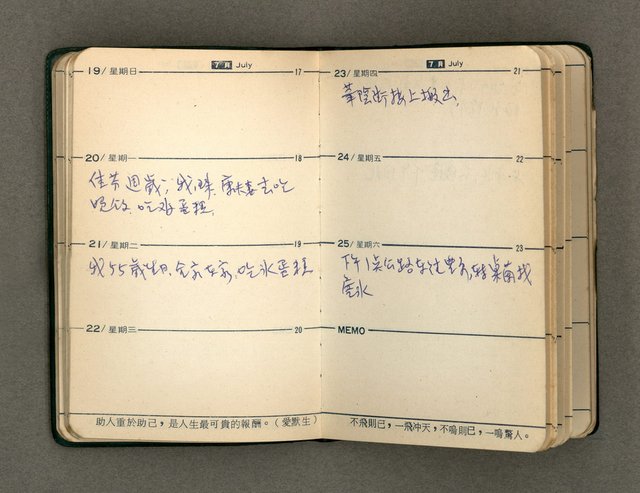 7月 July
19/星期日 17
20/星期一 18
佳芬週歲,我,珠
吃飯,吃冰蛋糕
21/星期二 19
我55歲生日,全家在家,吃冰蛋糕
22/星期三 20
助人重於助己,是人生最可貴的報酬。(愛默生)
7月 July
23/星期四 21
華陰街搭上搬出
24/星期五 22
25/星期六 23
下午1点公路車往豐原,轉
MEMO
不飛則已,一飛沖天,不鳴則已,一鳴驚人。